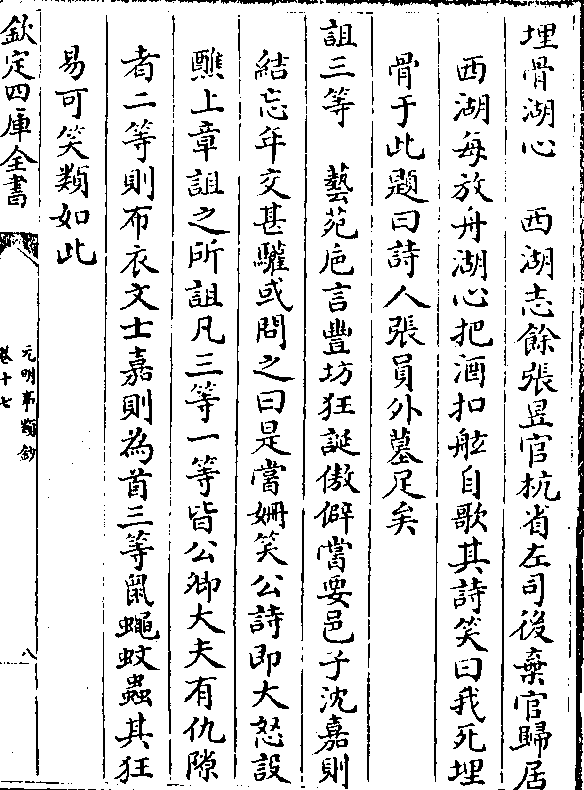 埋骨湖心　西湖志餘張昱官杭省左司後棄官歸居
西湖每放舟湖心把酒扣舷自歌其詩笑曰我死埋
骨于此題曰詩人張員外墓足矣
詛三等　藝苑巵言豐坊狂誕傲僻嘗要邑子沈嘉則
結忘年交甚驩或問之曰是當姍笑公詩即大怒設
醮上章詛之所詛凡三等一等皆公卿大夫有仇隙
者二等則布衣文士嘉則為首三等鼠蠅蚊蟲其狂
易可笑類如此
欽定四庫全書
元明事類鈔
卷十七
八